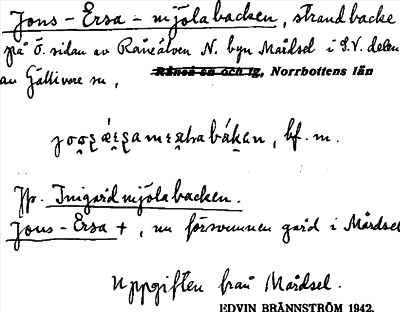 Jons-Ersa-mjölabacken, strandbacke
på ö. sidan av Råneälven N. byn Mårdsel i S.V. delen
av Gällivare sn,
Råneå sn och tg, Norrbottens län
bf. m.
Jfr. Inigårdmjölabacken.
Jons-Ersa +, nu försvunnen gård i Mårdsel
Uppgiften från Mårdsel.
EDVIN BRÄNNSTRÖM 1942.